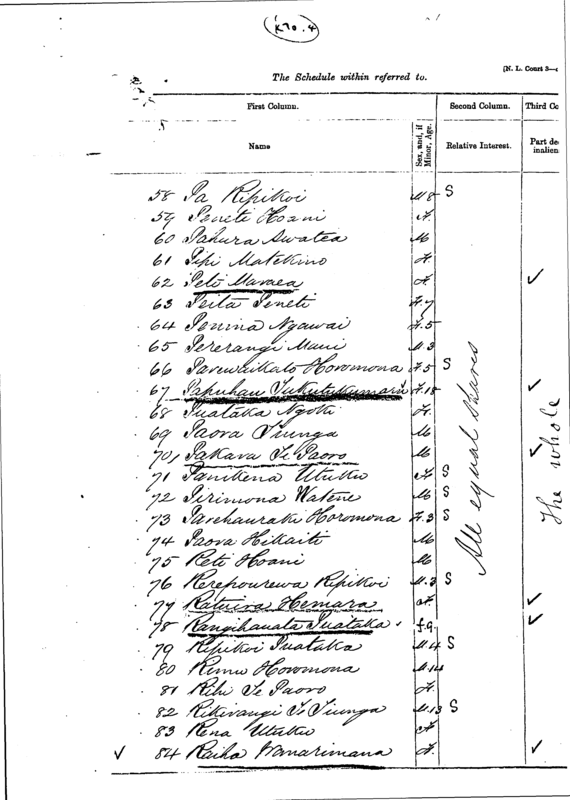 K70.4
(N. L. Court 3—
The Schedule within referred to.
First Column. Second Column. Third Co
Name Sex, and, if Minor, Age. Relative Interest. Part de inalien
58 Pa Ripikoi M 8 S
59 Peneti Hoani F.
60 Pahura Awatea M
61 Pipi Matekino F.
62 Peti Maraea F. ✓
63 Peita Peneti F. 7
64 Penina Ngawai F. 5
65 Pererangi Maui M 3
66 Parewaikato Horomona F. 5 S
67 Papuhau Tukutukumarie F. 18 ✓
68 Puataka Ngoki F.
69 Paora Tiunga M
70 Pakara Te Paoro M ✓
71 Panikena Utuku F S
72 Pirimona Watene M S
73 Parehauraki Horomona F. 3 S
74 Paora Hikaiti M
75 Reti Hoani M
76 Rerepourewa Ripikoi M. 3 S
77 Ratuiva Hemara F. ✓
78 Rangihauata Puataka f.9 ✓
79 Ripikoi Puataka M. 4 S
80 Rimu Horomona M. 14
81 Rihi Te Paoro F.
82 Rikirangi Te Tiunga M. 13 S
83 Rena Utuku F
✓ 84 Raiha Wanarimana F. ✓
All equal shares
The whole